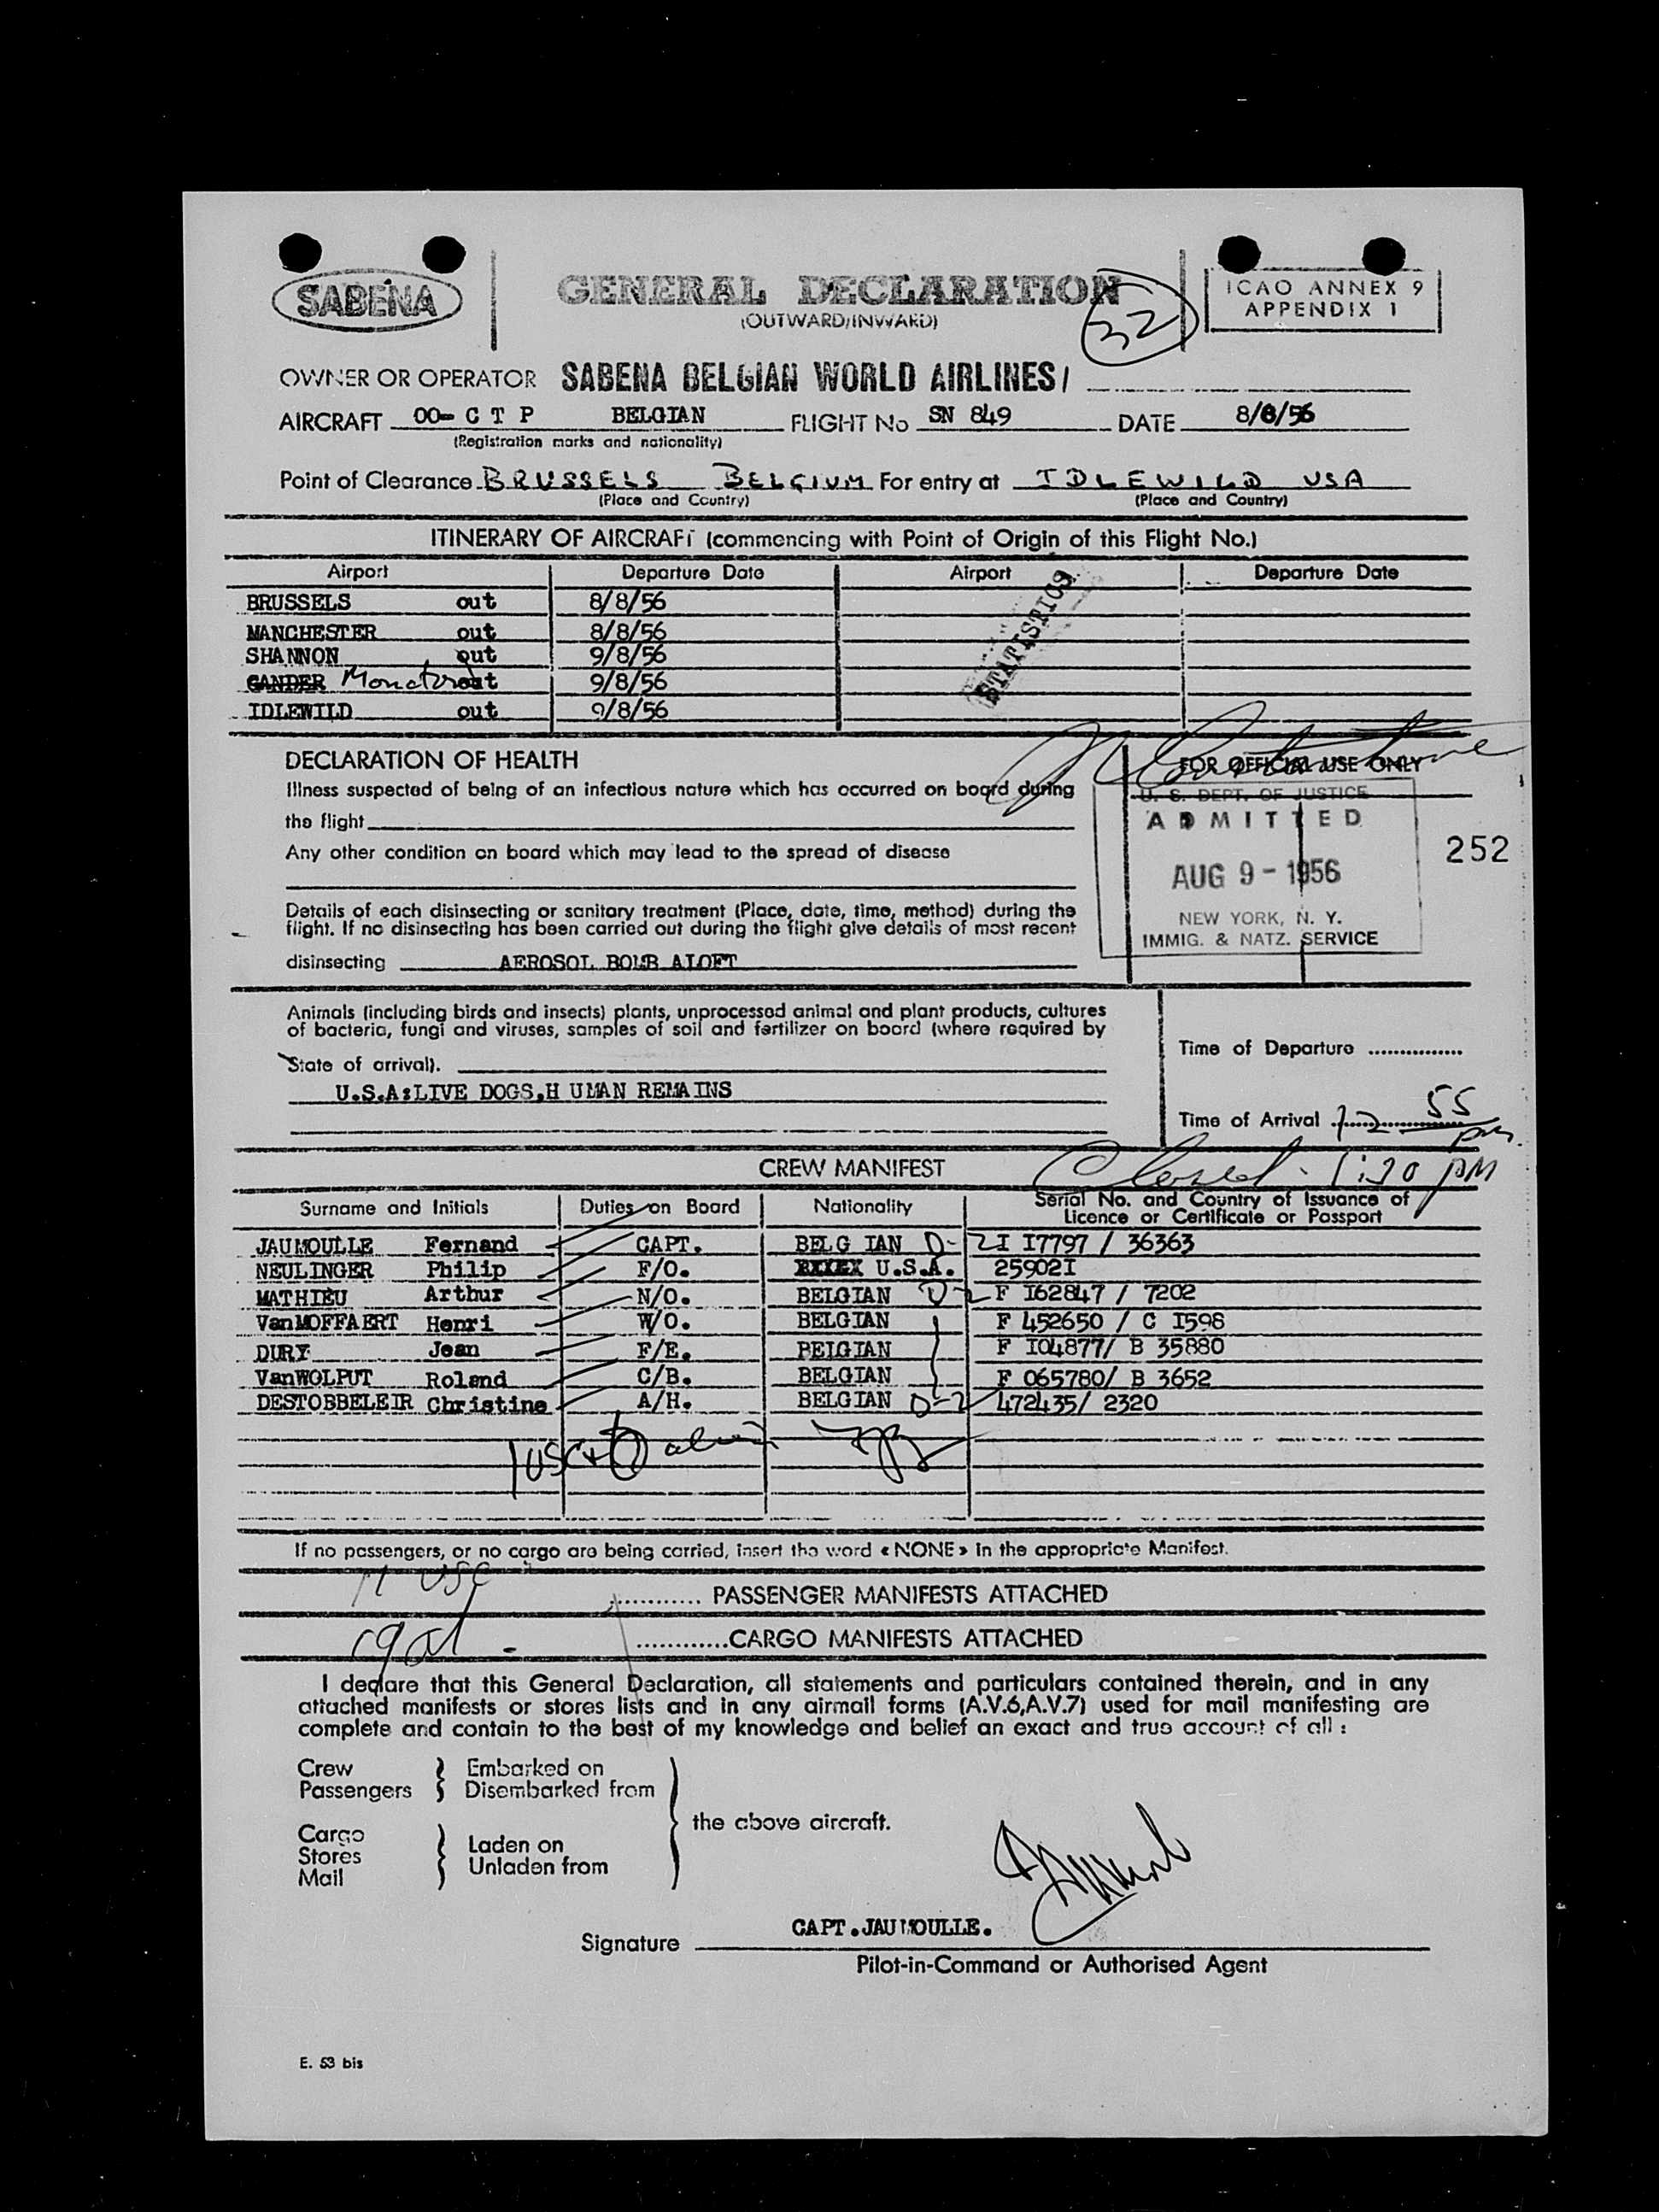 SABENA
GENERAL DECLARATION
(OUTWARD/INWARD)
32
ICAO ANNEX 9
APPENDIX 1
OWNER OR OPERATOR SABENA BELGIAN WORLD AIRLINES/
AIRCRAFT OO- C T P BELGIAN FLIGHT No SN 849 DATE 8/8/56
(Registration marks and nationality)
Point of Clearance BRUSSELS BELGIUM For entry at IDLEWILD USA
(Place and Country) (Place and Country)
ITINERARY OF AIRCRAFT (commencing with Point of Origin of this Flight No.)
Airport Departure Date Airport Departure Date
BRUSSELS out 8/8/56
MANCHESTER out 8/8/56
SHANNON out 9/8/56
GANDER out 9/8/56
IDLEWILD out 9/8/56
STATISTICS
DECLARATION OF HEALTH
Illness suspected of being of an infectious nature which has occurred on board during
the flight
Any other condition on board which may lead to the spread of disease
Details of each disinsecting or sanitary treatment (Place, date, time, method) during the
flight. If no disinsecting has been carried out during the flight give details of most recent
disinsecting AEROSOL BOMB ALOFT
FOR OFFICIAL USE ONLY
U. S. DEPT. OF JUSTICE
ADMITTED
AUG 9 - 1956
NEW YORK, N. Y.
IMMIG. & NATZ. SERVICE
252
Animals (including birds and insects) plants, unprocessed animal and plant products, cultures
of bacteria, fungi and viruses, samples of soil and fertilizer on board (where required by
State of arrival).
U.S.A:LIVE DOGS,H UMAN REMAINS
Time of Departure
Time of Arrival 12 55 pm.
Closed - 1:30 PM
CREW MANIFEST
Surname and Initials Duties on Board Nationality Serial No. and Country of Issuance of
Licence or Certificate or Passport
JAUMOULLE Fernand CAPT. BELG IAN D-2 I I7797 / 36363
NEULINGER Philip F/O. U.S.A. 25902I
MATHIEU Arthur N/O. BELGIAN D-2 F I62847 / 7202
VanMOFFAERT Henri W/O. BELGIAN F 452650 / C I598
DURY Jean F/E. BELGIAN F I04877/ B 35880
VanWOLPUT Roland C/B. BELGIAN F 065780/ B 3652
DESTOBBELEIR Christine A/H. BELGIAN D-2 472435/ 2320
1 USC + 6
If no passengers, or no cargo are being carried, insert the word « NONE » in the appropriate Manifest.
USC
............ PASSENGER MANIFESTS ATTACHED
............CARGO MANIFESTS ATTACHED
I declare that this General Declaration, all statements and particulars contained therein, and in any
attached manifests or stores lists and in any airmail forms (A.V.6,A.V.7) used for mail manifesting are
complete and contain to the best of my knowledge and belief an exact and true account of all :
Crew Embarked on
Passengers Disembarked from
the above aircraft.
Cargo
Stores Laden on
Mail Unladen from
CAPT.JAUMOULLE.
Signature
Pilot-in-Command or Authorised Agent
E. 53 bis